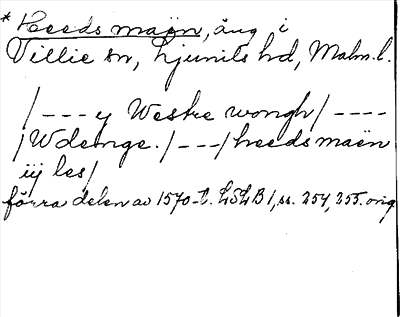 * Heeds maen, äng i
Villie sn, Ljunits hd, Malm.l.
/--- y Westre wongh/ ----
/Wdenge./---/heeds maen
iij les/
förra delen av 1570-t. LSLB 1, ss. 254, 255. orig